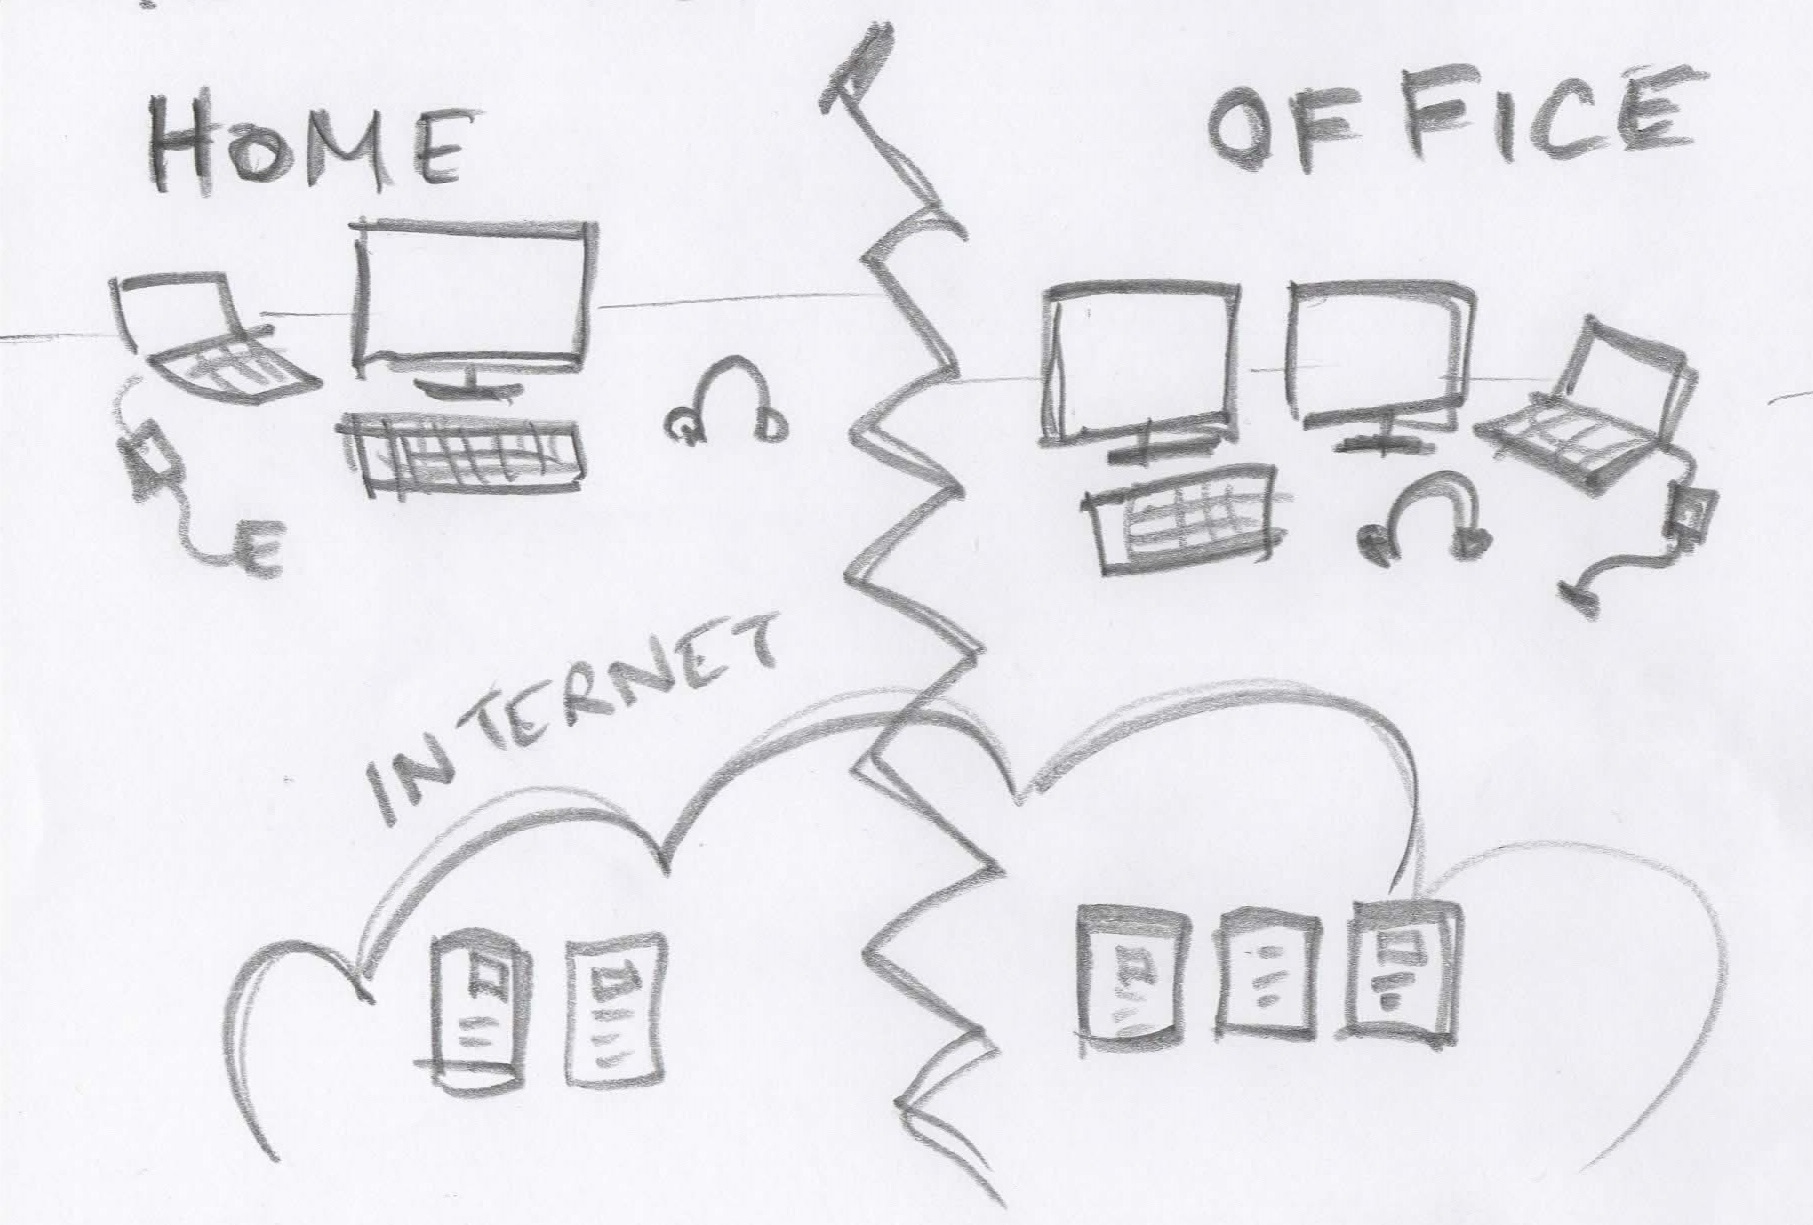 HOME
OFFICE
INTERNET